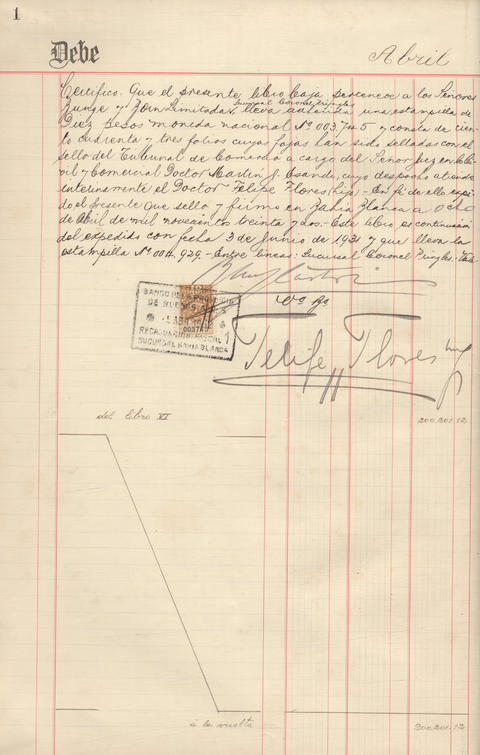 1
Debe
Abril
Certifico: Que el presente libro Caja pertenece a los Señores
Sucursal Coronel Pringles
Runge y Zorn Limitada, lleva adherida una estampilla de
Diez pesos moneda nacional Nº 003.745 y consta de cien-
to cuarenta y tres folios cuyas fojas han sido selladas con el
sello del Tribunal de Comercio a cargo del Señor Juez en lo Ci-
vil y Comercial Doctor Martin J. Esandi, cuyo despacho atiende
interinamente el Doctor Felipe Flores (hijo) - En fé de ello expi-
do el presente que sello y firmo en Bahia Blanca a ocho
de Abril de mil novecientos treinta y dos. Este libro es continuación
del expedido con fecha 3 de Junio de 1931 y que lleva la
estampilla Nº 004.929 - Entre lineas: Sucursal Coronel Pringles - Vale
Vº Bº
BANCO DE LA PROVINCIA
DE BUENOS AIRES
ABR
RECAUDACION FISCAL
SUCURSAL BAHIA BLANCA
Felipe Flores
del libro VI
200.201.12
à la vuelta
200.201.12